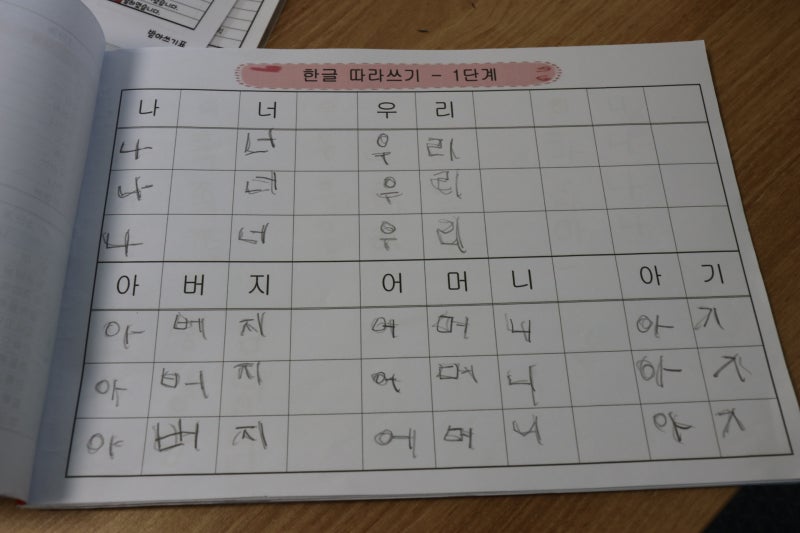 받아쓰기표
한글 따라쓰기 - 1단계
나 너 우리
나 너 우리
나 너 우리
나 너 우리
아버지 어머니 아기
아버지 어머니 아기
아버지 어머니 아기
아버지 어머니 아기